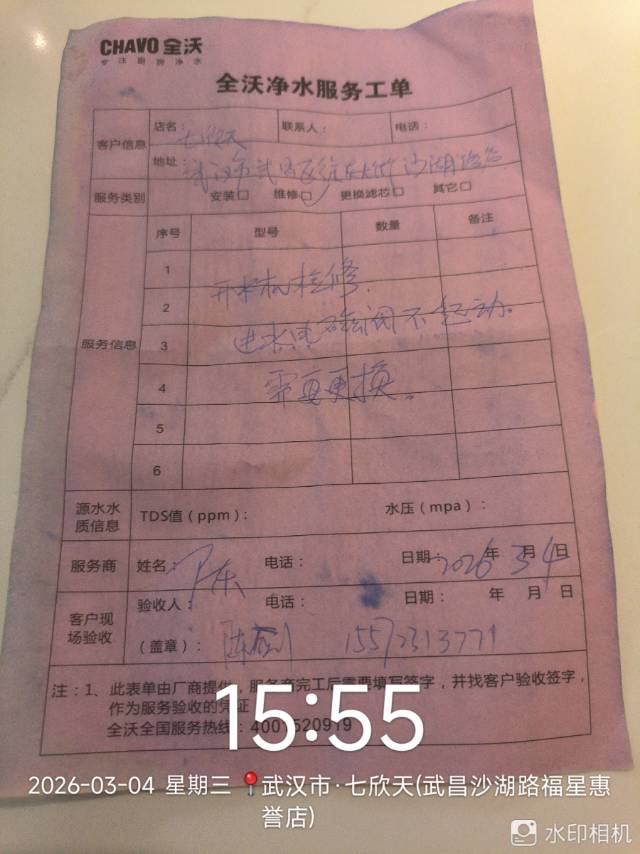 CHAVO 全沃
专注厨房净水
全沃净水服务工单
客户信息
店名：七欣天 联系人： 电话：
地址 武汉市武昌区 沙湖路
服务类别 安装□ 维修□ 更换滤芯□ 其它□
服务信息
序号 型号 数量 备注
1
开水机检修.
2
进水电磁阀不起动.
3
需要更换.
4
5
6
源水水质信息 TDS值（ppm）： 水压（mpa）：
服务商 姓名： 电话： 日期：2026年3月4日
客户现场验收
验收人： 电话： 日期： 年 月 日
（盖章）： 15572313771
注：1、此表单由厂商提供，服务商完工后需要填写签字，并找客户验收签字，
作为服务验收的凭证
全沃全国服务热线：4001520919
15:55
2026-03-04 星期三 武汉市·七欣天(武昌沙湖路福星惠
誉店)
水印相机